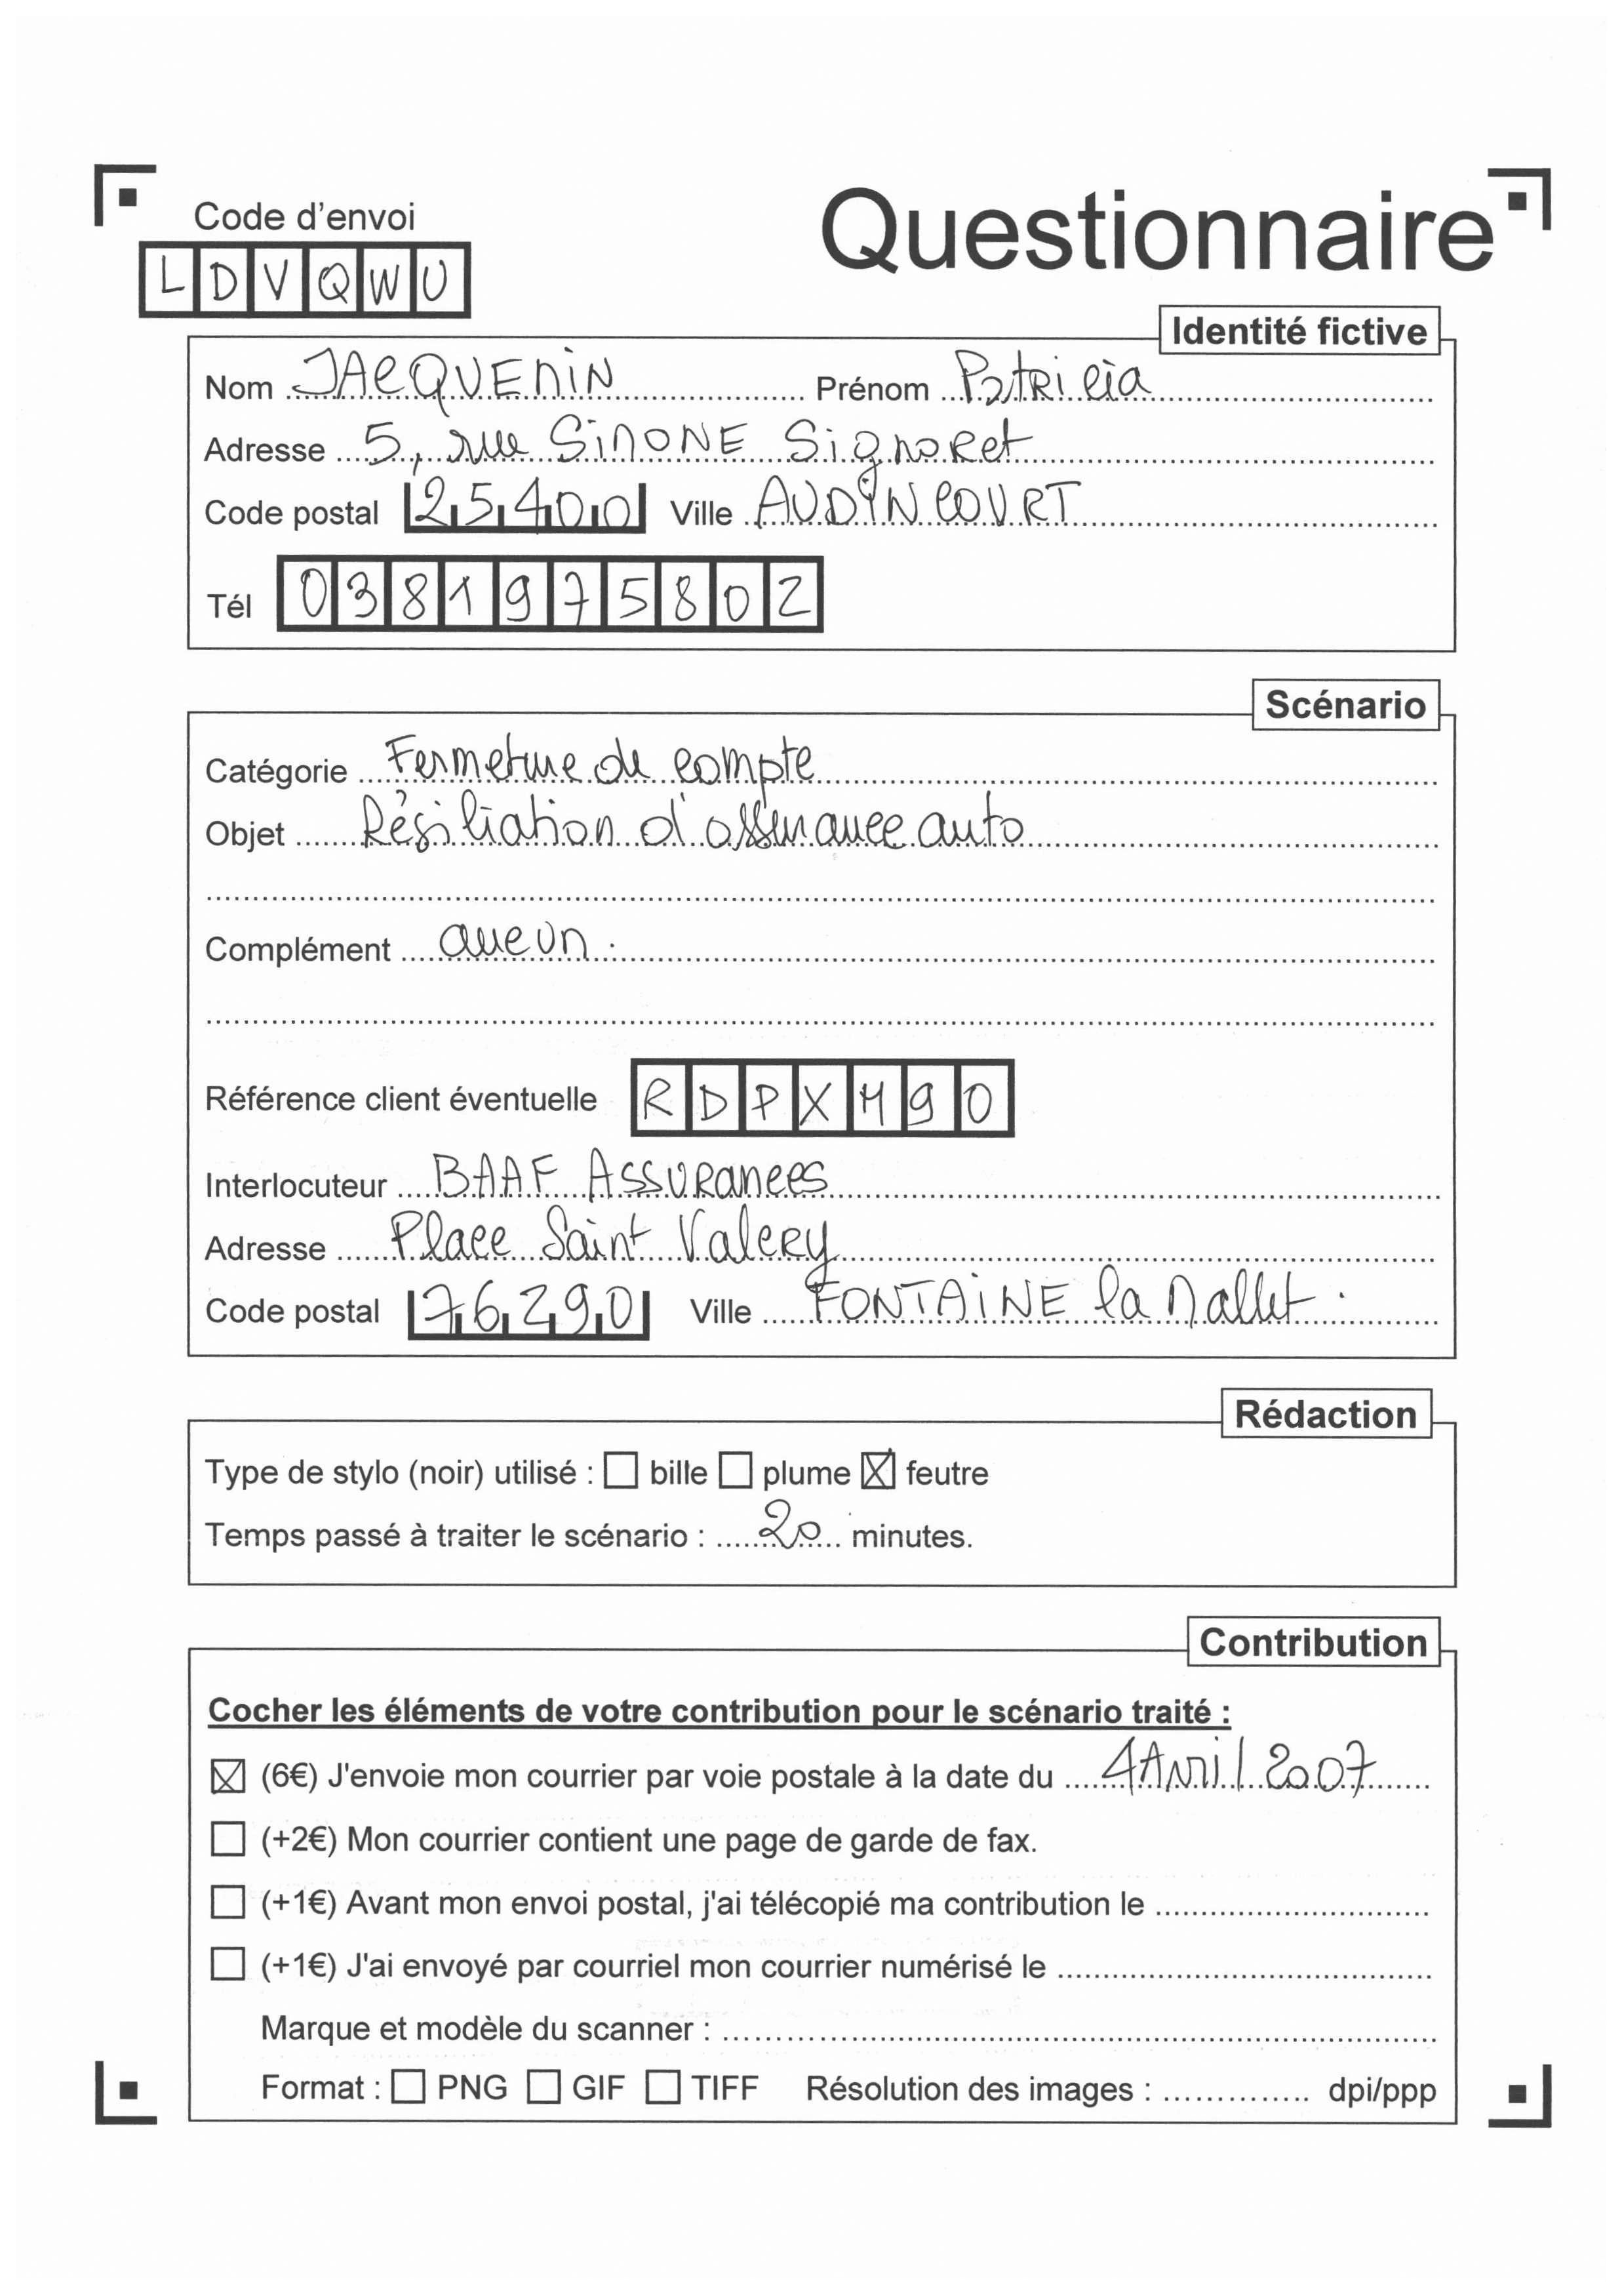 Code d'envoi
Questionnaire
LDVQWU
Identité fictive
Nom JACQUEMIN Prénom Patricia
Adresse 5, rue SIMONE Signoret
Code postal 25400 Ville AUDINCOURT
Tél 0381975802
Scénario
Catégorie Fermeture de compte
Objet Résiliation d'assurance auto
Complément aucun.
Référence client éventuelle RDPXM90
Interlocuteur BAAF Assurances
Adresse Place Saint Valery
Code postal 76290 Ville FONTAINE la Mallet.
Rédaction
Type de stylo (noir) utilisé : ☐ bille ☐ plume ☒ feutre
Temps passé à traiter le scénario : 20 minutes.
Contribution
Cocher les éléments de votre contribution pour le scénario traité :
☒ (6€) J'envoie mon courrier par voie postale à la date du 4 Avril 2007
☐ (+2€) Mon courrier contient une page de garde de fax.
☐ (+1€) Avant mon envoi postal, j'ai télécopié ma contribution le
☐ (+1€) J'ai envoyé par courriel mon courrier numérisé le
Marque et modèle du scanner :
Format : ☐ PNG ☐ GIF ☐ TIFF Résolution des images : dpi/ppp